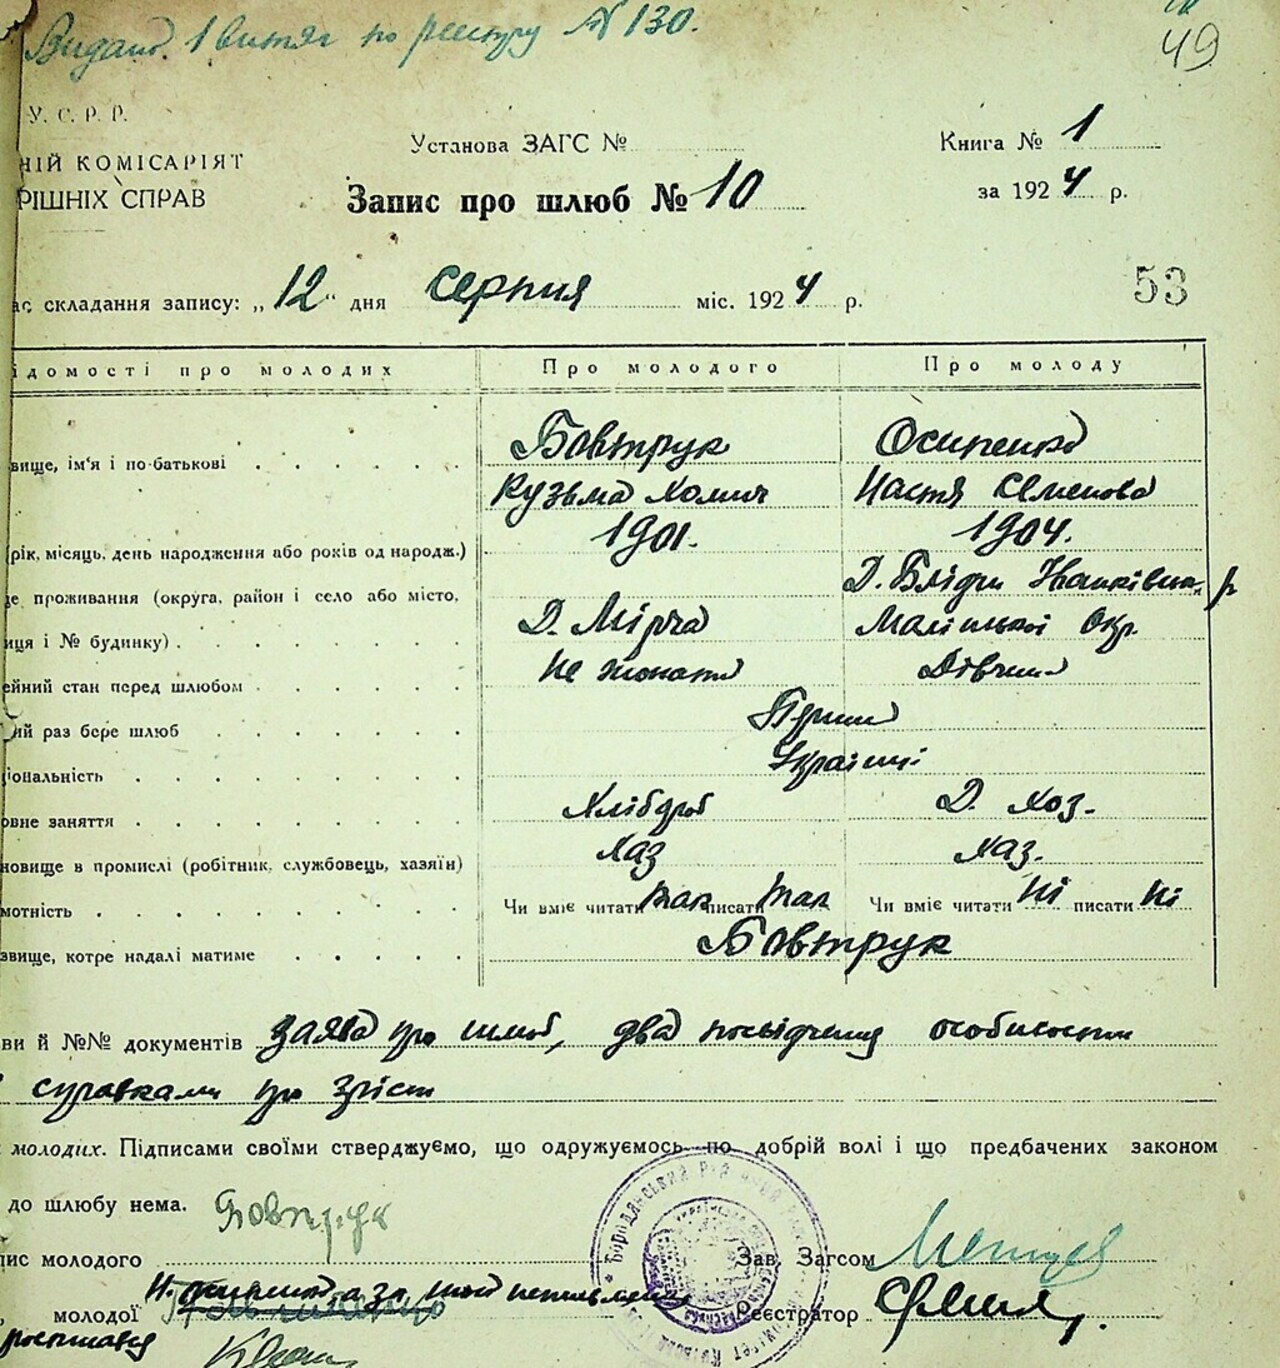 Видано 1 витяг по реєстру № 130.
49
У. С. Р. Р.
НІЙ КОМІСАРІЯТ
РІШНІХ СПРАВ
Установа ЗАГС №
Книга № 1
за 1924 р.
Запис про шлюб № 10
ас складання запису: „12“ дня серпня міс. 1924 р.
53
ідомості про молодих
Про молодого
Про молоду
вище, ім'я і по-батькові
Бовтрук
Осипенко
Кузьма Хомич
Настя Семенова
(рік, місяць, день народження або років од народж.)
1901.
1904.
це проживання (округа, район і село або місто,
иця і № будинку)
Д. Мірча
Д. Блідчи Іванківськ. р
Малинської Окр.
ейний стан перед шлюбом
Не жонатий
Дівчина
ий раз бере шлюб
Перший
іональність
Українці
овне заняття
Хлібороб
Д. хоз.
новище в промислі (робітник, службовець, хазяїн)
Хаз
Хаз.
мотність
Чи вміє читати так писати так
Чи вміє читати ні писати ні
звище, котре надалі матиме
Бовтрук
ви й №№ документів заява про шлюб, два посвідчення особистости
справками про зріст
молодих. Підписами своїми стверджуємо, що одружуємось по добрій волі і що предбачених законом
до шлюбу нема.
пис молодого Бовтрук
Зав. Загсом
молодої
Реєстратор